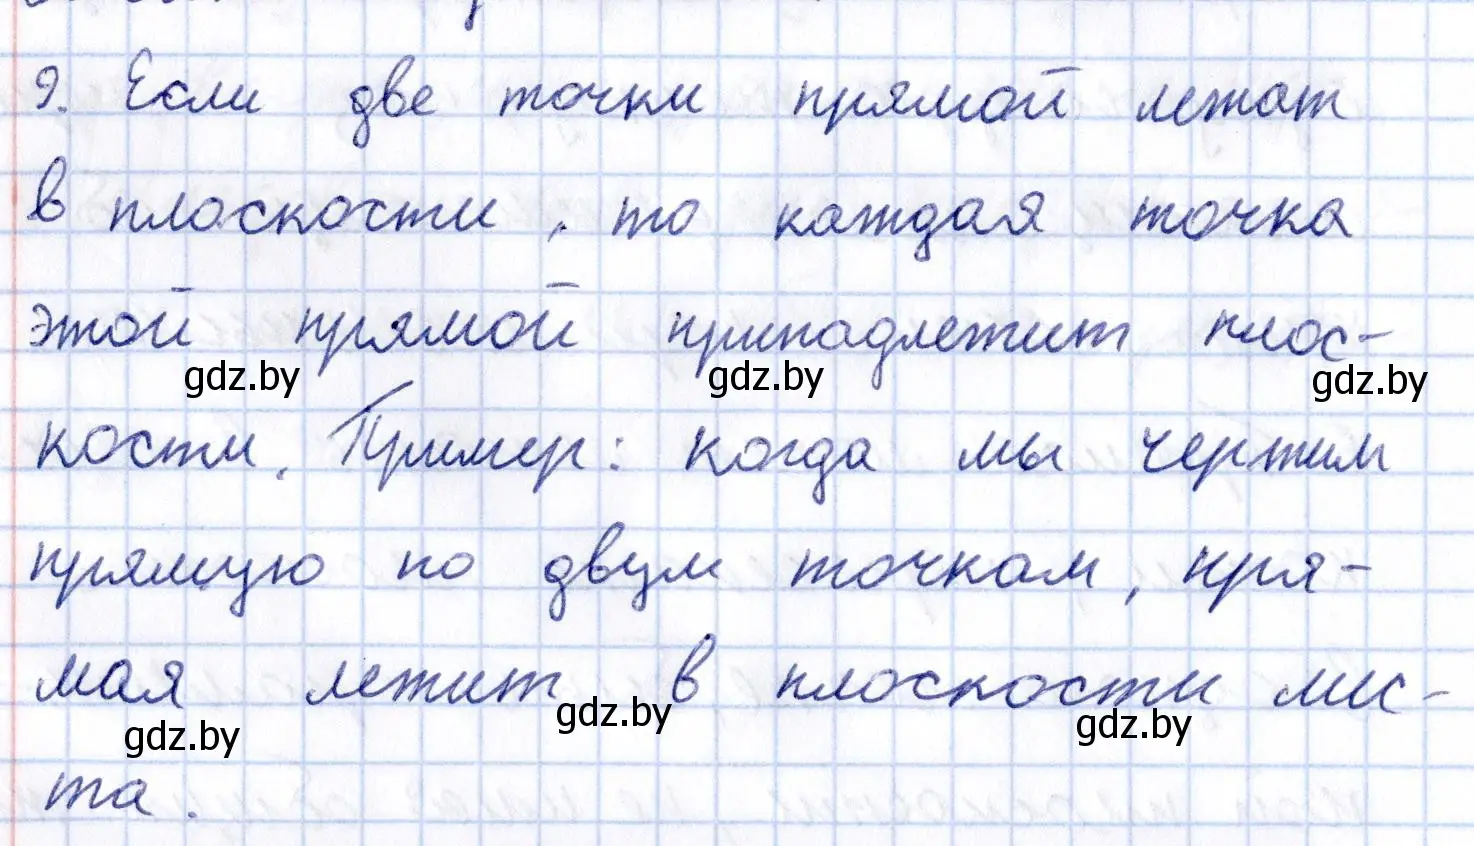 9. Если две точки прямой лежат
в плоскости, то каждая точка
этой прямой принадлежит плос-
gdz.by gdz.by gdz.by
кости. Пример: когда мы чертим
прямую по двум точкам, пря-
мая лежит в плоскости лис-
gdz.by gdz.by gdz.by
та.